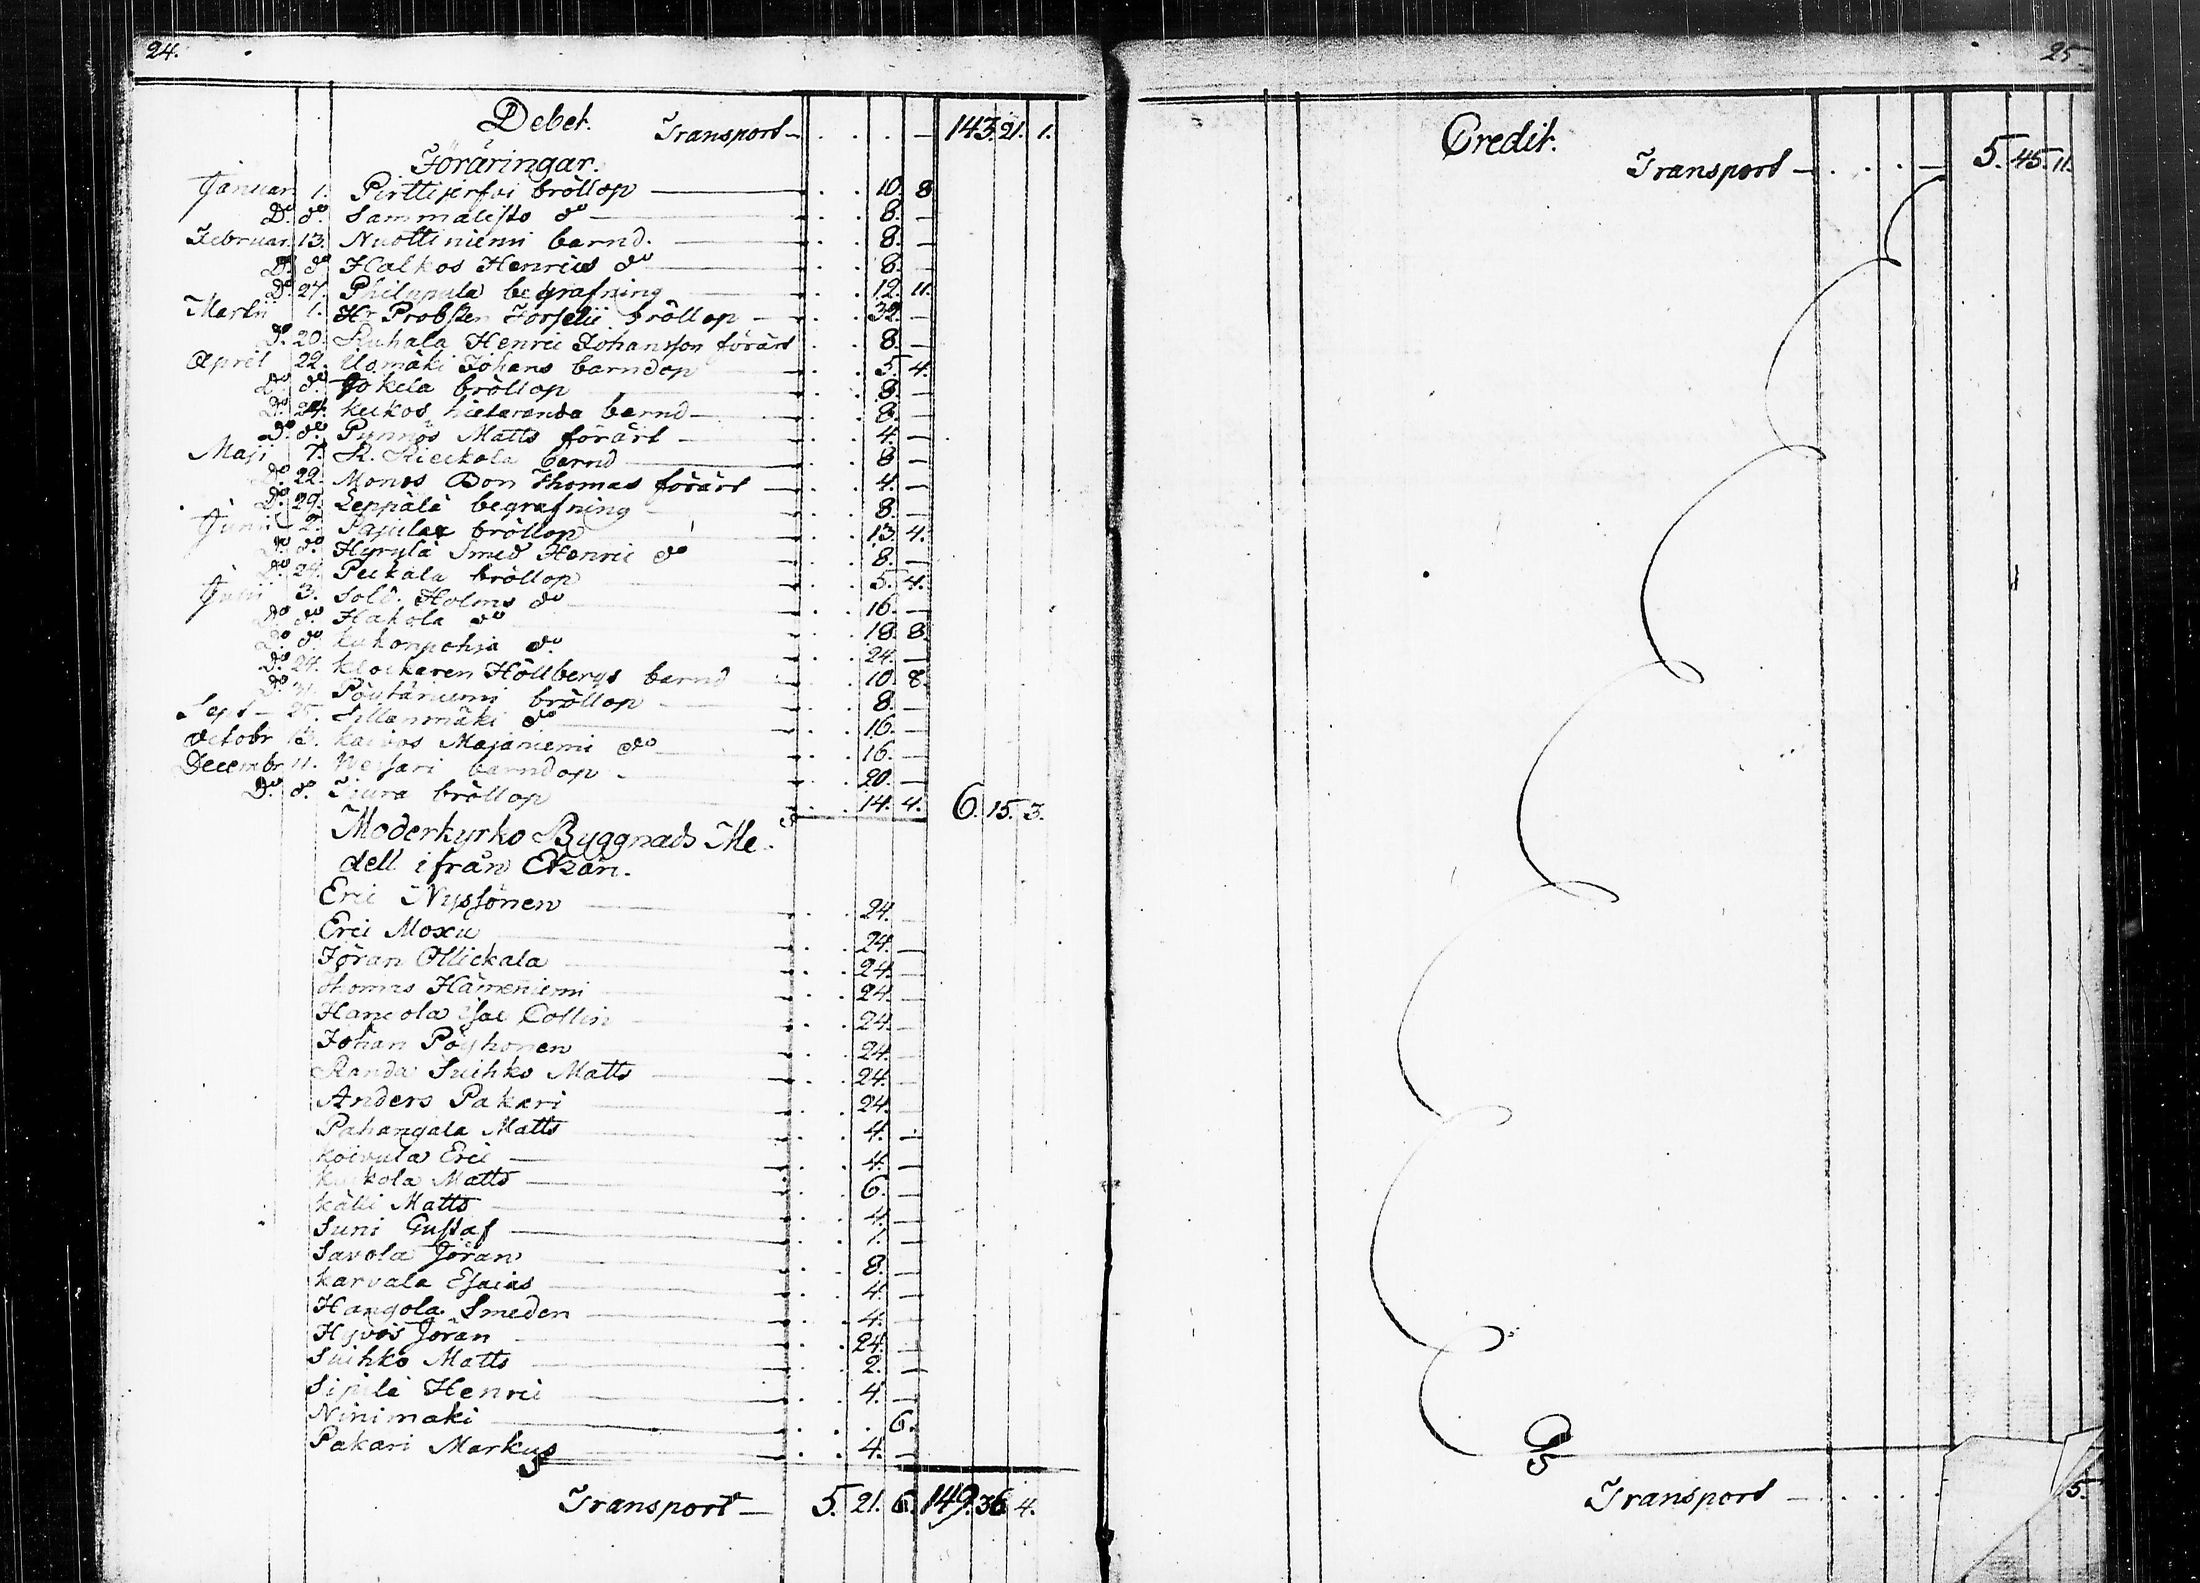 24.
Debet. Transport — 143. 21. 1.
Föräringar.
Januari 1. Pirttijerfvi bröllop 10. 8
Do do Sammalisto do 8. —
Februar. 13. Nuottiniemi barnd. 8. —
Do do Halkos Henrics do 8. —
Do 27. begrafning 12. 11.
Martii 1. Hr Probsten bröllop 32. —
Do 20. Henric Johansson förärt 8. —
April 22. Johans barndop 5. 4.
Do do Jokela bröllop 8. —
Do 24. barnd 8. —
Do do Pynnös Matts förärt 4. —
Maji 7. barnd 8 —
Do 22. Thomas förärt 4. —
Do 29. Leppälä begrafning 8. —
Junii 2. bröllop 13. 4.
Do do Hyrylä Smed Henric do 8. —
Do 24. Peckala bröllop 5. 4.
Julii 3. Sold. Holms do 16. —
Do do Hakola do 18. 8.
Do do Lukonpohja do 24. —
Do 24. Klockaren Höllbergs barnd 10. 8.
Do 31. Pöytäniemi bröllop 8. —
Sept 25. Sillanmäki do 16. —
Octobr 13. Majaniemi do 16. —
Decembr 11. barndop 20. —
Do do bröllop 14. 4. 6. 15. 3.
Moderkyrko Byggnads Me-
dell ifrån Etzäri.
Eric Nyssönen 24. —
Eric Moxu 24. —
Jöran Ollickala 24. —
Thomas Hämeniemi 24. —
Collin 24. —
Johan Pöyhonen 24. —
Randa Suihko Matts 24. —
Anders Pakari 24. —
Pahangala Matts 4. —
Koivula Eric 4. —
Matts 6. —
Källi Matts 4. —
Suni Gustaf 1. —
Savola Jöran 8. —
Karvala Esaias 4. —
Hangola Smeden 4. —
Jöran 24. —
Suihko Matts 2. —
Sipilä Henric 4. —
Ninimaki 6.
Pakari Markus 4. —
Transport — 5. 21. 6. 149. 36. 4.
25
Credit.
Transport — 5. 45. 11.
Transport — 5.